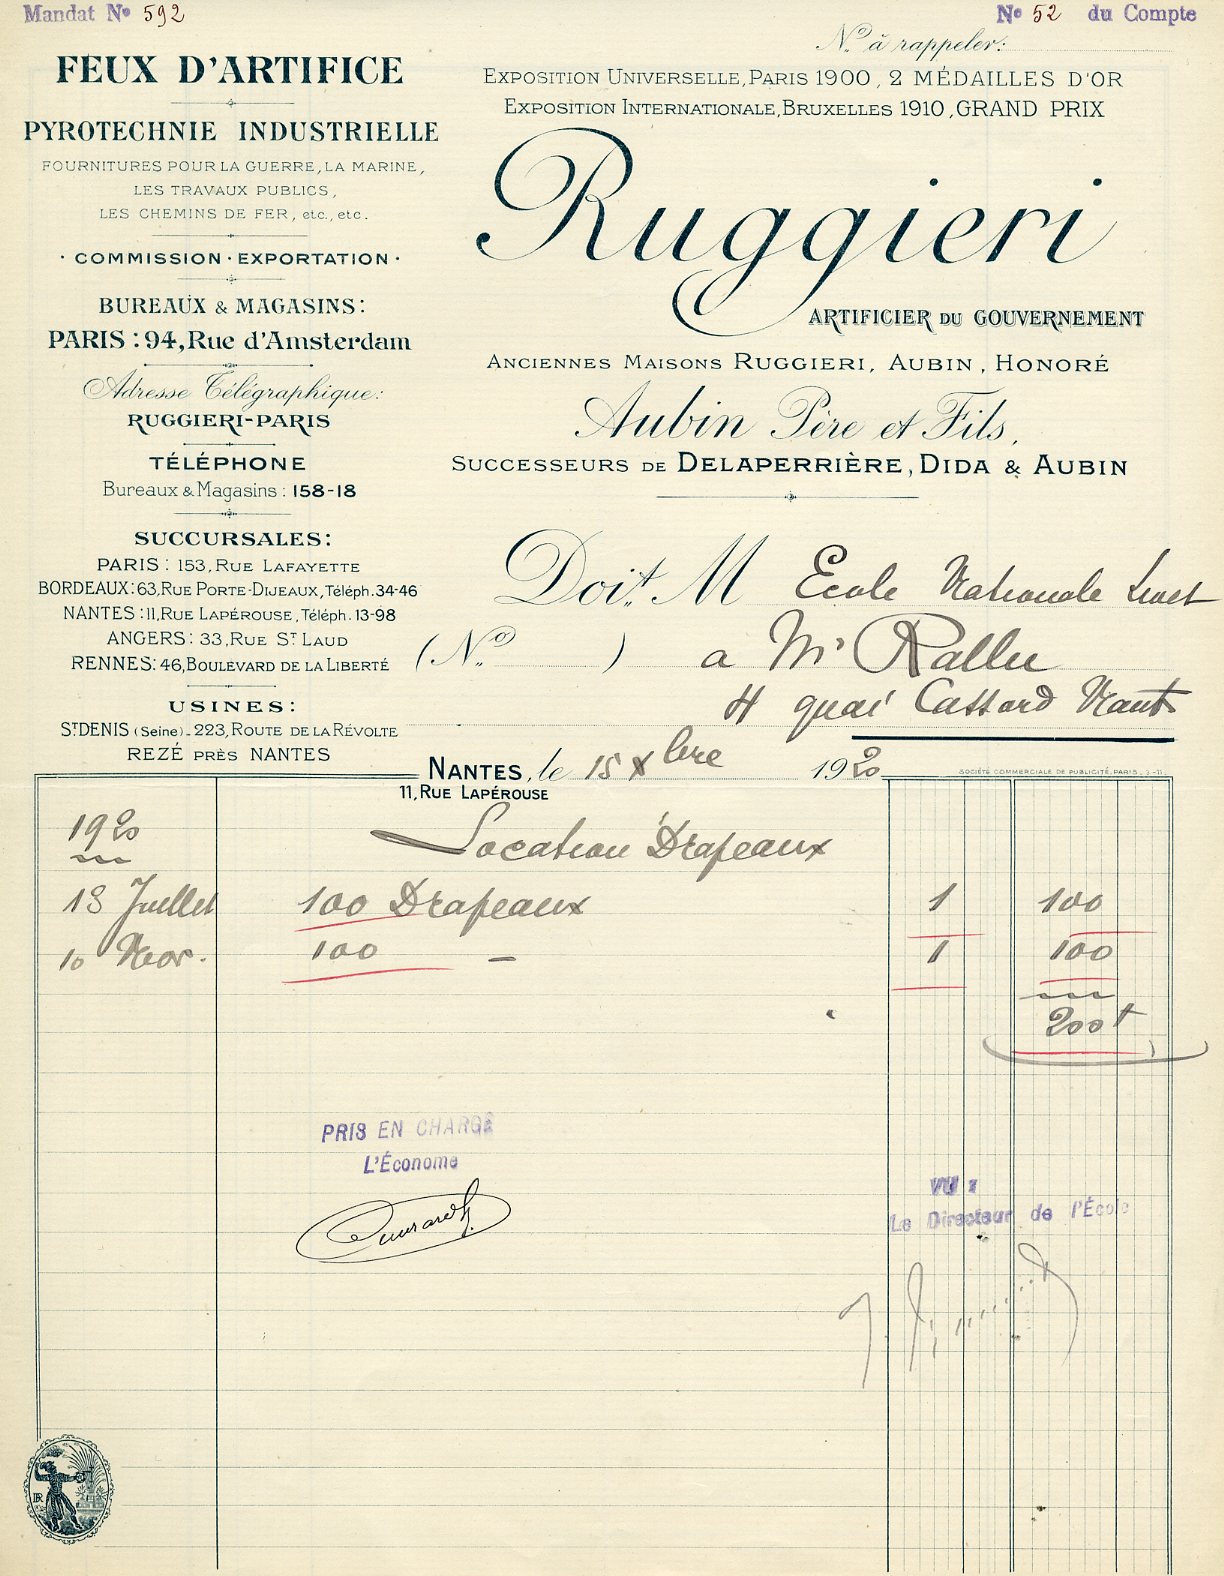 Mandat No 592
No 52 du Compte
No à rappeler:
FEUX D'ARTIFICE
PYROTECHNIE INDUSTRIELLE
FOURNITURES POUR LA GUERRE, LA MARINE,
LES TRAVAUX PUBLICS,
LES CHEMINS DE FER, etc., etc.
· COMMISSION · EXPORTATION ·
BUREAUX & MAGASINS:
PARIS: 94, Rue d'Amsterdam
Adresse Télégraphique:
RUGGIERI-PARIS
TÉLÉPHONE
Bureaux & Magasins: 158-18
SUCCURSALES:
PARIS: 153, RUE LAFAYETTE
BORDEAUX: 63, RUE PORTE-DIJEAUX, Téléph. 34-46
NANTES: 11, RUE LAPÉROUSE, Téléph. 13-98
ANGERS: 33, RUE ST LAUD
RENNES: 46, BOULEVARD DE LA LIBERTÉ
USINES:
ST DENIS (Seine) - 223, ROUTE DE LA RÉVOLTE
REZÉ PRÈS NANTES
EXPOSITION UNIVERSELLE, PARIS 1900, 2 MÉDAILLES D'OR
EXPOSITION INTERNATIONALE, BRUXELLES 1910, GRAND PRIX
Ruggieri
ARTIFICIER DU GOUVERNEMENT
ANCIENNES MAISONS RUGGIERI, AUBIN, HONORÉ
Aubin Père et Fils,
SUCCESSEURS DE DELAPERRIÈRE, DIDA & AUBIN
Doit M Ecole Nationale Livet
(No ) a Mr Rallu
4 quai Cassard Nantes
NANTES, le 15 Xbre 1920
11, RUE LAPÉROUSE
SOCIÉTÉ COMMERCIALE DE PUBLICITÉ, PARIS
1920 Location Drapeaux
13 Juillet 100 Drapeaux 1 100
10 Nov. 100 — 1 100
200 f
PRIS EN CHARGE
L'Économe
VU:
Le Directeur de l'École